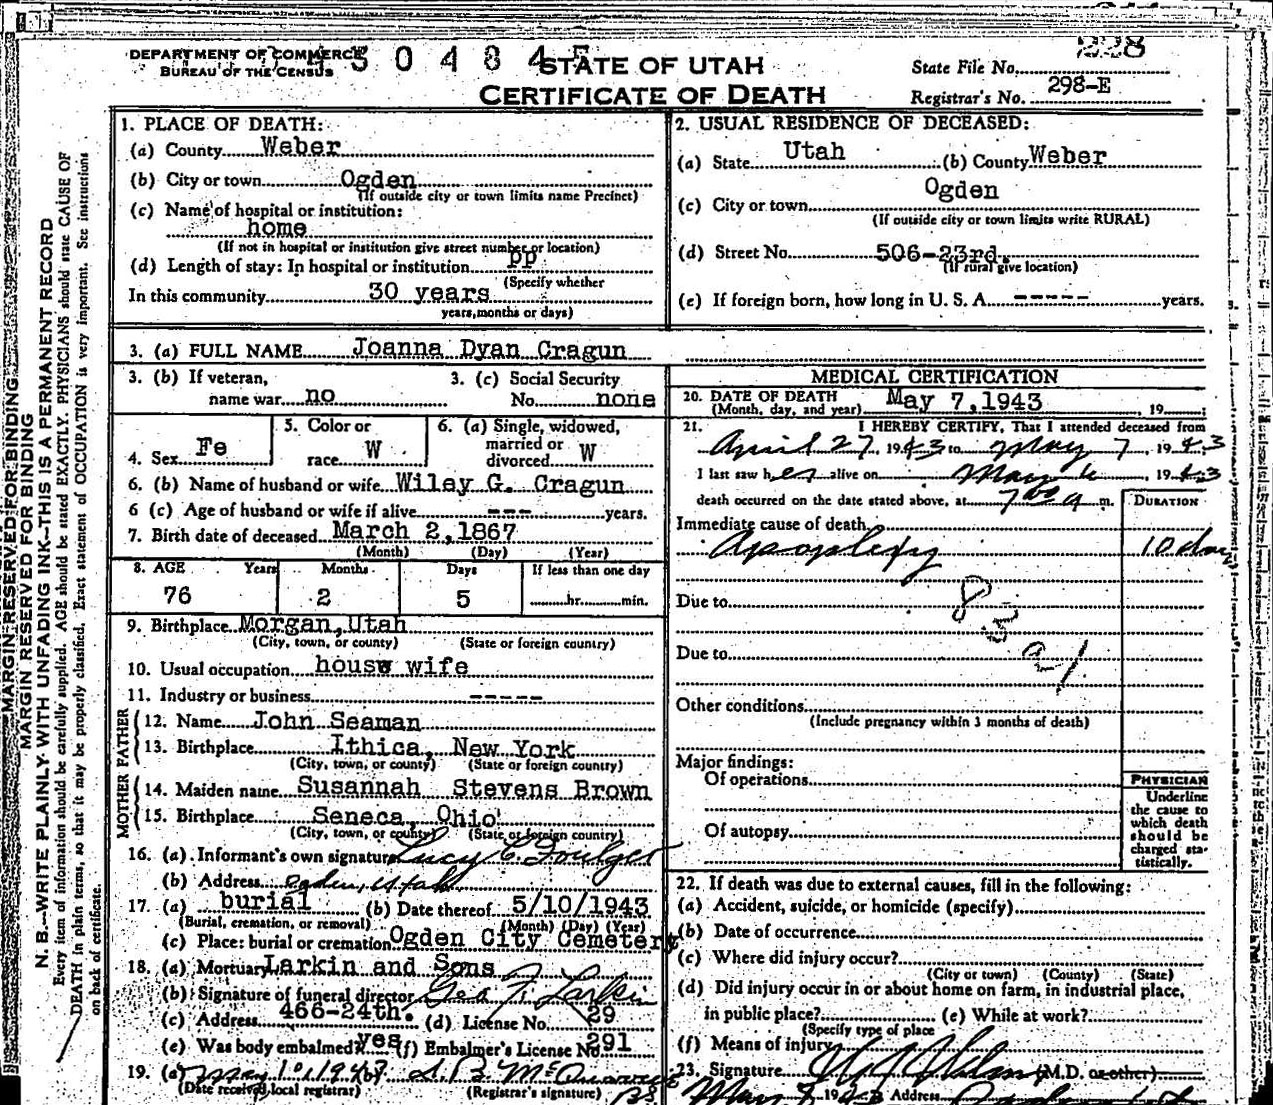 DEPARTMENT OF COMMERCE
BUREAU OF THE CENSUS
STATE OF UTAH
CERTIFICATE OF DEATH
State File No. 228
Registrar's No. 298-E
1. PLACE OF DEATH:
(a) County Weber
(b) City or town Ogden
(If outside city or town limits name Precinct)
(c) Name of hospital or institution:
home
(If not in hospital or institution give street number or location)
(d) Length of stay: In hospital or institution pp
(Specify whether
In this community 30 years
years, months or days)
2. USUAL RESIDENCE OF DECEASED:
(a) State Utah (b) County Weber
Ogden
(c) City or town
(If outside city or town limits write RURAL)
(d) Street No. 506-23rd.
(If rural give location)
(e) If foreign born, how long in U. S. A. ----- years.
3. (a) FULL NAME Joanna Dyan Cragun
3. (b) If veteran, name war no
3. (c) Social Security No. none
4. Sex Fe
5. Color or race W
6. (a) Single, widowed, married or divorced W
6. (b) Name of husband or wife Wiley G. Cragun
6 (c) Age of husband or wife if alive --- years.
7. Birth date of deceased March 2,1867
(Month) (Day) (Year)
8. AGE Years Months Days If less than one day
76 2 5 hr. min.
9. Birthplace Morgan,Utah
(City, town, or county) (State or foreign country)
10. Usual occupation house wife
11. Industry or business -----
FATHER
12. Name John Seaman
13. Birthplace Ithica, New York
(City, town, or county) (State or foreign country)
MOTHER
14. Maiden name Susannah Stevens Brown
15. Birthplace Seneca, Ohio
(City, town, or county) (State or foreign country)
16. (a) Informant's own signature Lucy C. Foulger
(b) Address Ogden, Utah
17. (a) burial (b) Date thereof 5/10/1943
(Burial, cremation, or removal) (Month) (Day) (Year)
(c) Place: burial or cremation Ogden City Cemetery
18. (a) Mortuary Larkin and Sons
(b) Signature of funeral director Geo F. Larkin
(c) Address 466-24th. (d) License No. 29
(e) Was body embalmed? yes (f) Embalmer's License No. 291
19. (a) May 10, 1943 (b)
(Date received local registrar) (Registrar's signature)
MEDICAL CERTIFICATION
20. DATE OF DEATH May 7,1943, 19
(Month, day, and year)
21. I HEREBY CERTIFY, That I attended deceased from
April 27, 1943 to May 7, 1943
I last saw her alive on May 6 1943
death occurred on the date stated above, at 7 00 a m.
DURATION
Immediate cause of death
Apoplexy 10 days
Due to
83a1
Due to
Other conditions
(Include pregnancy within 3 months of death)
Major findings:
Of operations
Of autopsy
PHYSICIAN
Underline
the cause to
which death
should be
charged sta-
tistically.
22. If death was due to external causes, fill in the following:
(a) Accident, suicide, or homicide (specify)
(b) Date of occurrence
(c) Where did injury occur?
(City or town) (County) (State)
(d) Did injury occur in or about home on farm, in industrial place,
in public place? (e) While at work?
(Specify type of place
(f) Means of injury
23. Signature (M.D. or other)
May 7 1943 Address
MARGIN RESERVED FOR BINDING
MARGIN RESERVED FOR BINDING
N. B.—WRITE PLAINLY WITH UNFADING INK—THIS IS A PERMANENT RECORD
Every item of information should be carefully supplied. AGE should be stated EXACTLY. PHYSICIANS should state CAUSE OF
DEATH in plain terms, so that it may be properly classified. Exact statement of OCCUPATION is very important. See instructions
on back of certificate.